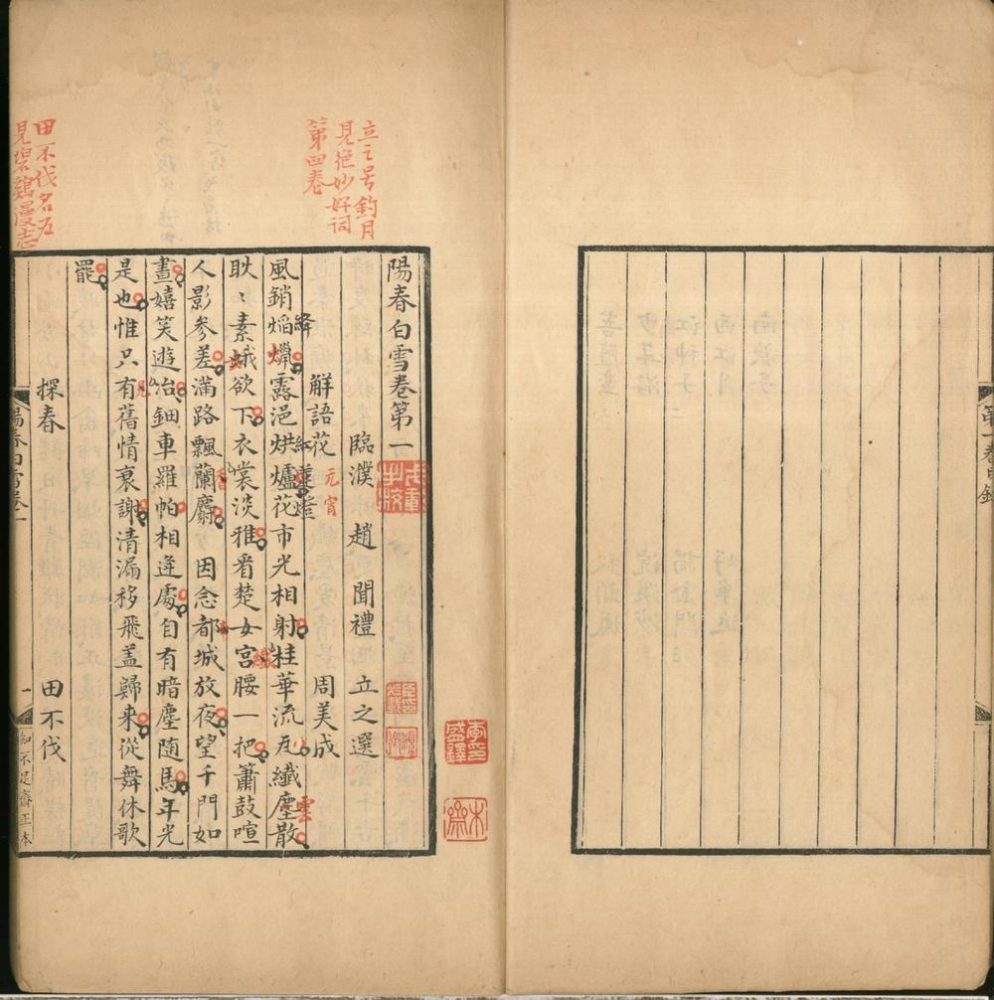 第一卷目錄
立之号釣月
見絕妙好词
第四卷
田不伐名為
見碧鷄漫志
陽春白雪卷第一
臨濮趙聞禮立之選
解語花 元宵 周美成
風銷焰爓露浥烘爐花市光相射桂華流瓦纖塵散
絳
紅蓮燈
雲
耿〻素娥欲下衣裳淡雅看楚女宮腰一把簫鼓喧
纖
人影參差滿路飄蘭麝 因念都城放夜望千門如
香
晝嬉笑遊冶鈿車羅帕相逢處自有暗塵隨馬年光
是也惟只有舊情衰謝清漏移飛盖歸来從舞休歌
見
罷
探春 田不伐
陽春白雪卷一
一
知不足齋正本
李氏
盛鐸
木
齋